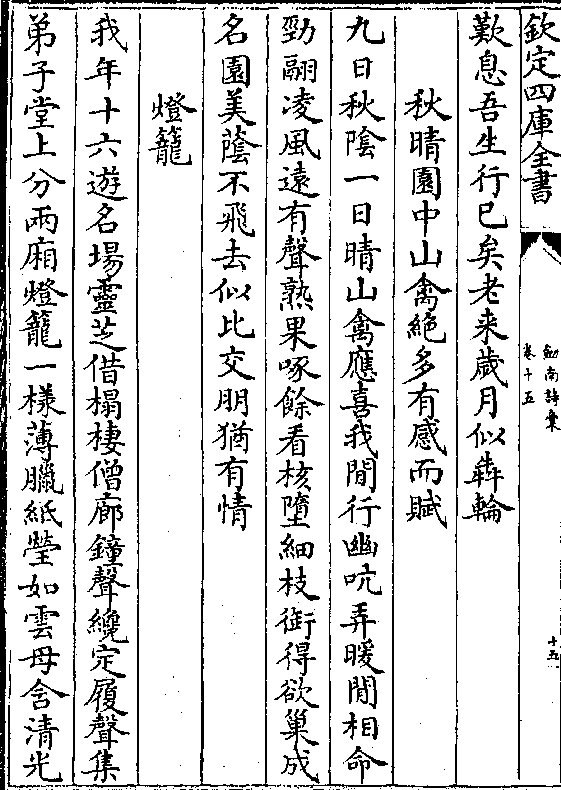 欽定四庫全書
劍南詩稾
卷十五
十五
歎息吾生行已矣老来歲月似犇輪
秋晴園中山禽絶多有感而賦
九日秋陰一日晴山禽應喜我閒行幽吭弄暖閒相命
勁翮凌風遠有聲熟果啄餘看核墮細枝銜得欲巢成
名園美蔭不飛去似比交朋猶有情
燈籠
我年十六遊名場靈芝借榻棲僧廊鐘聲纔定履聲集
弟子堂上分兩廂燈籠一様薄臘紙瑩如雲母含清光